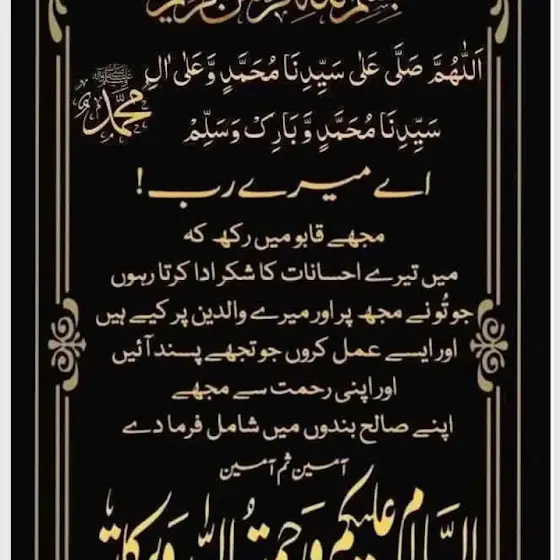 بسم اللہ الرحمن الرحیم
اَللّٰهُمَّ صَلِّی عَلٰی سَیِّدِنَا مُحَمَّدٍ وَّعَلٰی اٰلِ
سَیِّدِنَا مُحَمَّدٍ وَّ بَارِکْ وَسَلِّمْ
ﷺ
محمد
اے میرے رب !
مجھے قابو میں رکھ کہ
میں تیرے احسانات کا شکر ادا کرتا رہوں
جو تُو نے مجھ پر اور میرے والدین پر کیے ہیں
اور ایسے عمل کروں جو تجھے پسند آئیں
اور اپنی رحمت سے مجھے
اپنے صالح بندوں میں شامل فرما دے
آمین ثم آمین
السلام علیکم ورحمۃ اللہ وبرکاتہ